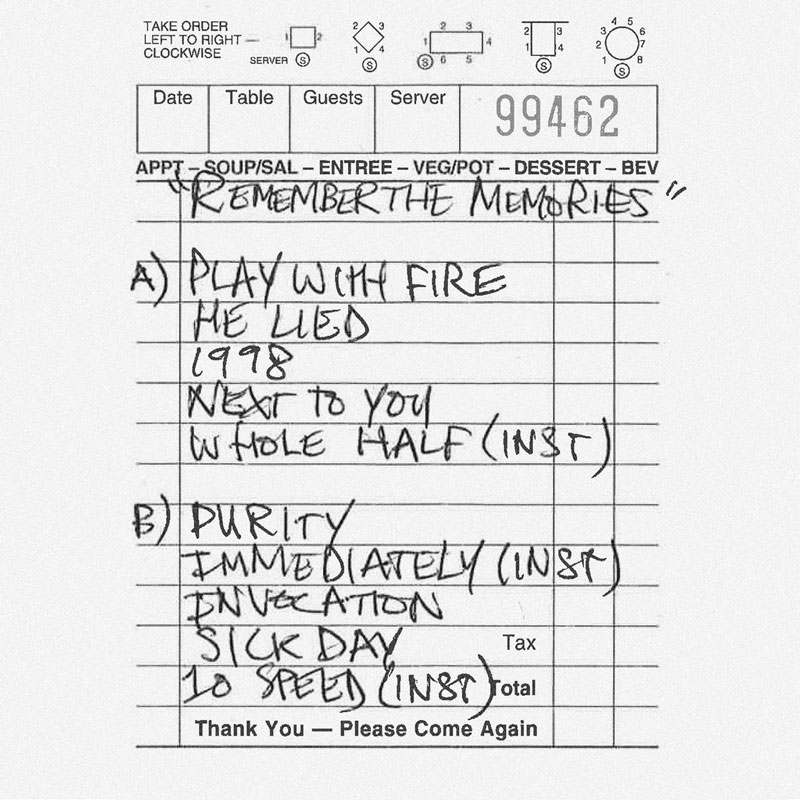 TAKE ORDER
LEFT TO RIGHT —
CLOCKWISE
SERVER S
1 2
2 3
1 4
S
2 3
1 4
S 6 5
2 3
1 4
S
4 5
3 6
2 7
1 8
S
Date Table Guests Server 99462
APPT – SOUP/SAL – ENTREE – VEG/POT – DESSERT – BEV
"REMEMBER THE MEMORIES"
A) PLAY WITH FIRE
HE LIED
1998
NEXT TO YOU
WHOLE HALF (INST)
B) PURITY
IMMEDIATELY (INST)
INVOCATION
SICK DAY Tax
10 SPEED (INST) Total
Thank You — Please Come Again